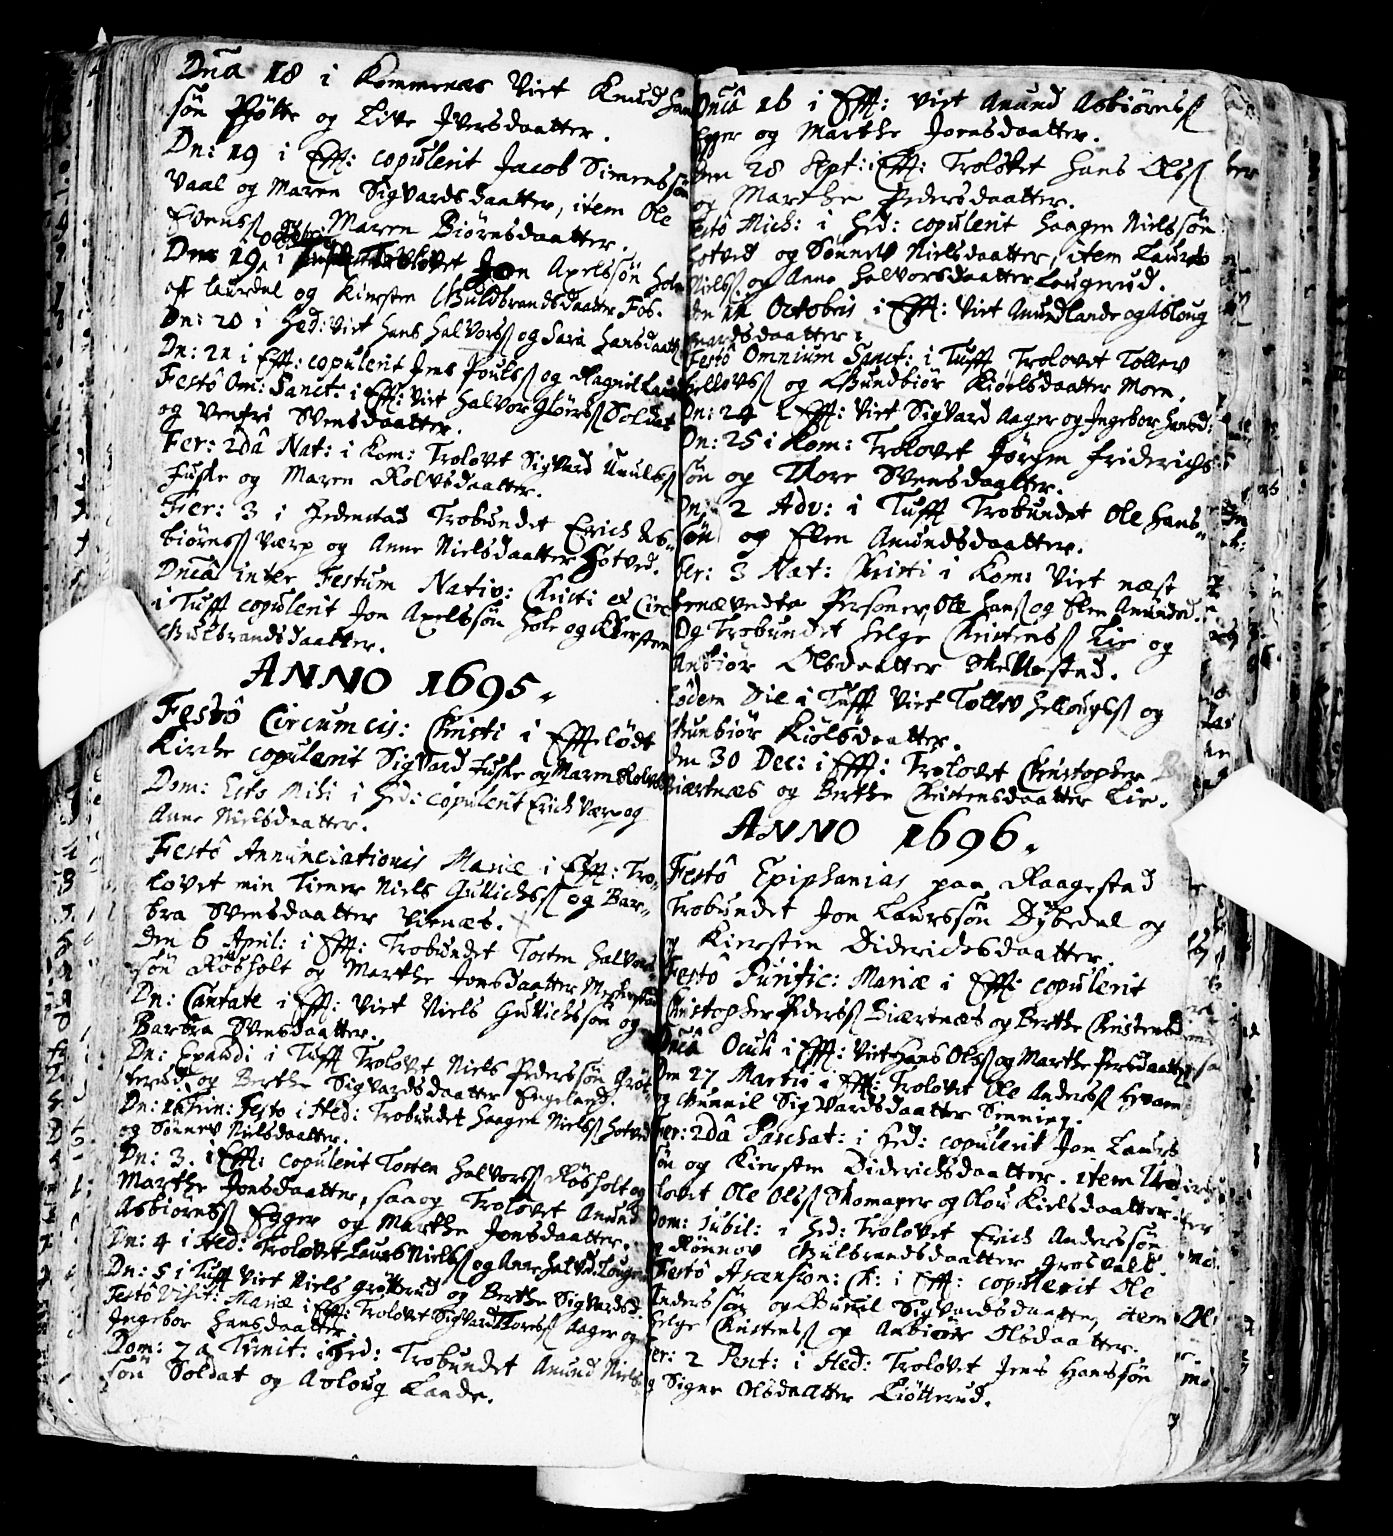 Dnca 18 i Kommenæs Viet Knud Han
sön Pjötte og Live Iversdaatter.
Dn: 19 i Efft: copulerit Jacob Simenssön
Vaal og Maren Sigvardsdaatter, item Ole
Evenss og Maren Biörnsdaatter.
Dna 19 i Trolovet Jon Axelssön Hole
aff Laurdal og Kiersten Guldbrandsdaatter Fos.
Dn: 20 i Hed: Viet Hans Halvorss og Sara Hansdaatt
Dn: 21 i Efft: copulerit Jens Poulss og Ragnil
Festô Om: Sanct: i Efft: Viet Halvor Soldat
og Venfri Svensdaatter.
Fer: 2dâ Nat: i Kom: Trolovet Sigvard
Fuske og Maren Rolvsdaatter.
Fer: 3 i Hedenstad Trobundet Erich As-
biörnss Værp og Anne Nielsdaatter Hotved.
Dncâ inter Festum Nativ: Christi et Circ
i Tufft copulerit Jon Axelssön Hole og Kiersten
Gulbrandsdaatter.
ANNO 1695.
Festô Circumcis: Christi i Efftelödt
Kirche copulerit Sigvard Fuske og Maren Rolvsd
Dom: Esto Mihi i Hed: copulerit Erich Værp og
Anne Nielsdaatter.
Festô Annunciationis Mariæ i Efft: Tro-
lovet min Tiener Niels Gullichss og Bar-
bra Svensdaatter
den 6 April: i Efft: Trobundet Tosten Halvors
sön Röbsholt og Marthe Jonsdaatter
Dn: Cantate i Efft: Viet Niels Gullichssön og
Barbra Svensdaatter.
Dn: Exaudi i Tufft Trolovet Niels Pederssön Gröt-
terud og Berthe Sigvardsdaatter Engeland.
Dn: Trin: Festo i Hed: Trobundet Haagen Nielss Hotved
og Sönnev Nielsdaatter.
Dn: 3. i Efft: copulerit Tosten Halvorss Röbsholt og
Marthe Jonsdaatter, saa og Trolovet Amund
Asbiornss Egger og Marthe Jonsdaatter.
Dn: 4 i Hed: Trolovet Laurs Nielss og Anne Halvd. Lougerud
Dn: 5 i Tufft Viet Niels Grötterud og Berthe Sigvardsd.
Festô Visit: Mariæ i Efft: Trolovet Sigvard Toress Aager og
Ingebor Hansdaatter.
Dom: 7 a Trinit: i Hed: Trobundet Amund Niels-
sön Soldat og Aaloug Lande.
Dncâ 16 i Efft: Viet Amund Asbiörnss
Egger og Marthe Jonsdaatter.
den 28 Sept: i Efft: Trolovet Hans Olss
og Marthe Pedersdaatter.
Festô Mich: i Hed: copulerit Haagen Nielssön
Hotved og Sönnev Nielsdaatter, item Laurs
Nielss og Anne Halvorsdaatter Lougerud.
den 11 Octobris i Efft: Viet Amund Lande og Asloug
Festô Omnium Sanct: i Tufft Trolovet Tollev
Hellovss og Gunbiör Kiölsdaatter Moen.
Dn: 24 i Efft: Viet Sigvard Aager og Ingebor Hansd:
Dn: 25 i Kom: Trolovet Jörgen Friderichs
sön og Thore Svensdaatter.
Dn: 2 Adv: i Tufft Trobundet Ole Hans-
sön og Elen Amundsdaatter.
Fer: 3 Nat: Christi i Kom: Viet næst
benævndte Personer, Ole Hanss og Elen Amundsd.
Og Trobundet Helge Christenss Lie og
Anbiör Olsdaatter
Eodem Die i Tufft Viet Tollev Hellougss og
Gunbiör Kiölsdaatter.
den 30 Dec: i Efft: Trolovet Christopher
Biærtnæs og Berthe Christensdaatter Lie.
ANNO 1696.
Festô Epiphanias paa Raagestad
Trobundet Jon Laurssön Dybedal og
Kiersten Diderichsdaatter.
Festô Purific: Mariæ i Efft: copulerit
Christopher Pederss Biærtnæs og Berthe Christensd
Dncâ Oculi i Efft: Viet Hans Olss og Marthe Persdaatter
Den 27 Martii i Efft: Trolovet Ole Anderss Hvam
og Gunnil Sigvardsdaatter
Fer: 2dâ Paschat: i Hed: copulerit Jon Laurs
sön og Kiersten Diderichsdaatter. item Tro
lovet Ole Olss Skomager og Olou Kielsdaatter.
Dom: Jubil: i Hed: Trolovet Erich Anderssön
og Rönnov Gulbrandsdaatter Grosvold.
Festô Ascension: Ch: i Efft: copulerit Ole
Anderssön og Gunil Sigvardsdaatter, item
Helge Christenss og Anbiör Olsdaatter.
Fer: 2 Pent: i Hed: Trolovet Jens Hanssön
og Signe Olsdaatter Liötterud.